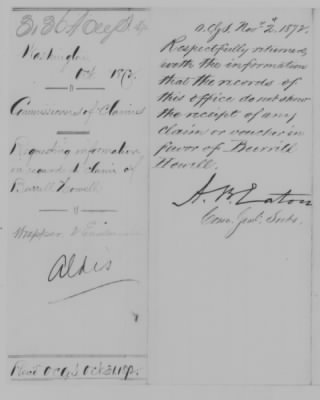 Washington
Oct. 1872.
Commissioners of Claims
Requesting information
in regard to claim of
Burrill Howell
Wrapper &
Aldis
A.C.G.S. Nov. 2d, 1872.
Respectfully returned
with the information
that the records of
this office do not show
the receipt of any
claim or voucher in
favor of Burrill
Howell.
A. B. Eaton
Com. Genl. Subs.